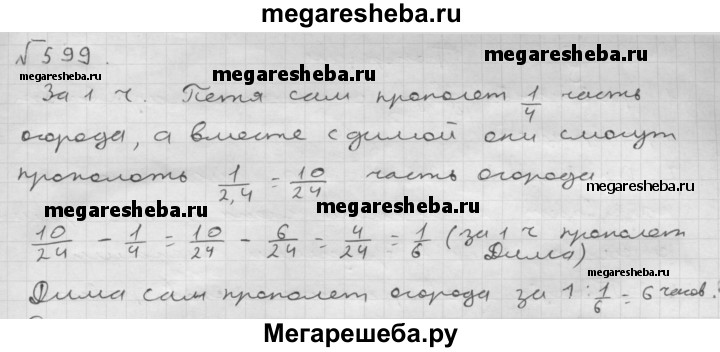 megaresheba.ru
√599.
megaresheba.ru
megaresheba.ru
megaresheba.ru
За 1 ч. Петя сам прополет 1/4 часть
огорода, а вместе с димой они смогут
прополоть 1/2,4 = 10/24 часть огорода
megaresheba.ru
megaresheba.ru
megaresheba.ru
10/24 - 1/4 = 10/24 - 6/24 = 4/24 = 1/6 (за 1 ч прополет
Дима)
megaresheba.ru
Дима сам прополет огорода за 1 : 1/6 = 6 часов.
Мегарешеба.ру